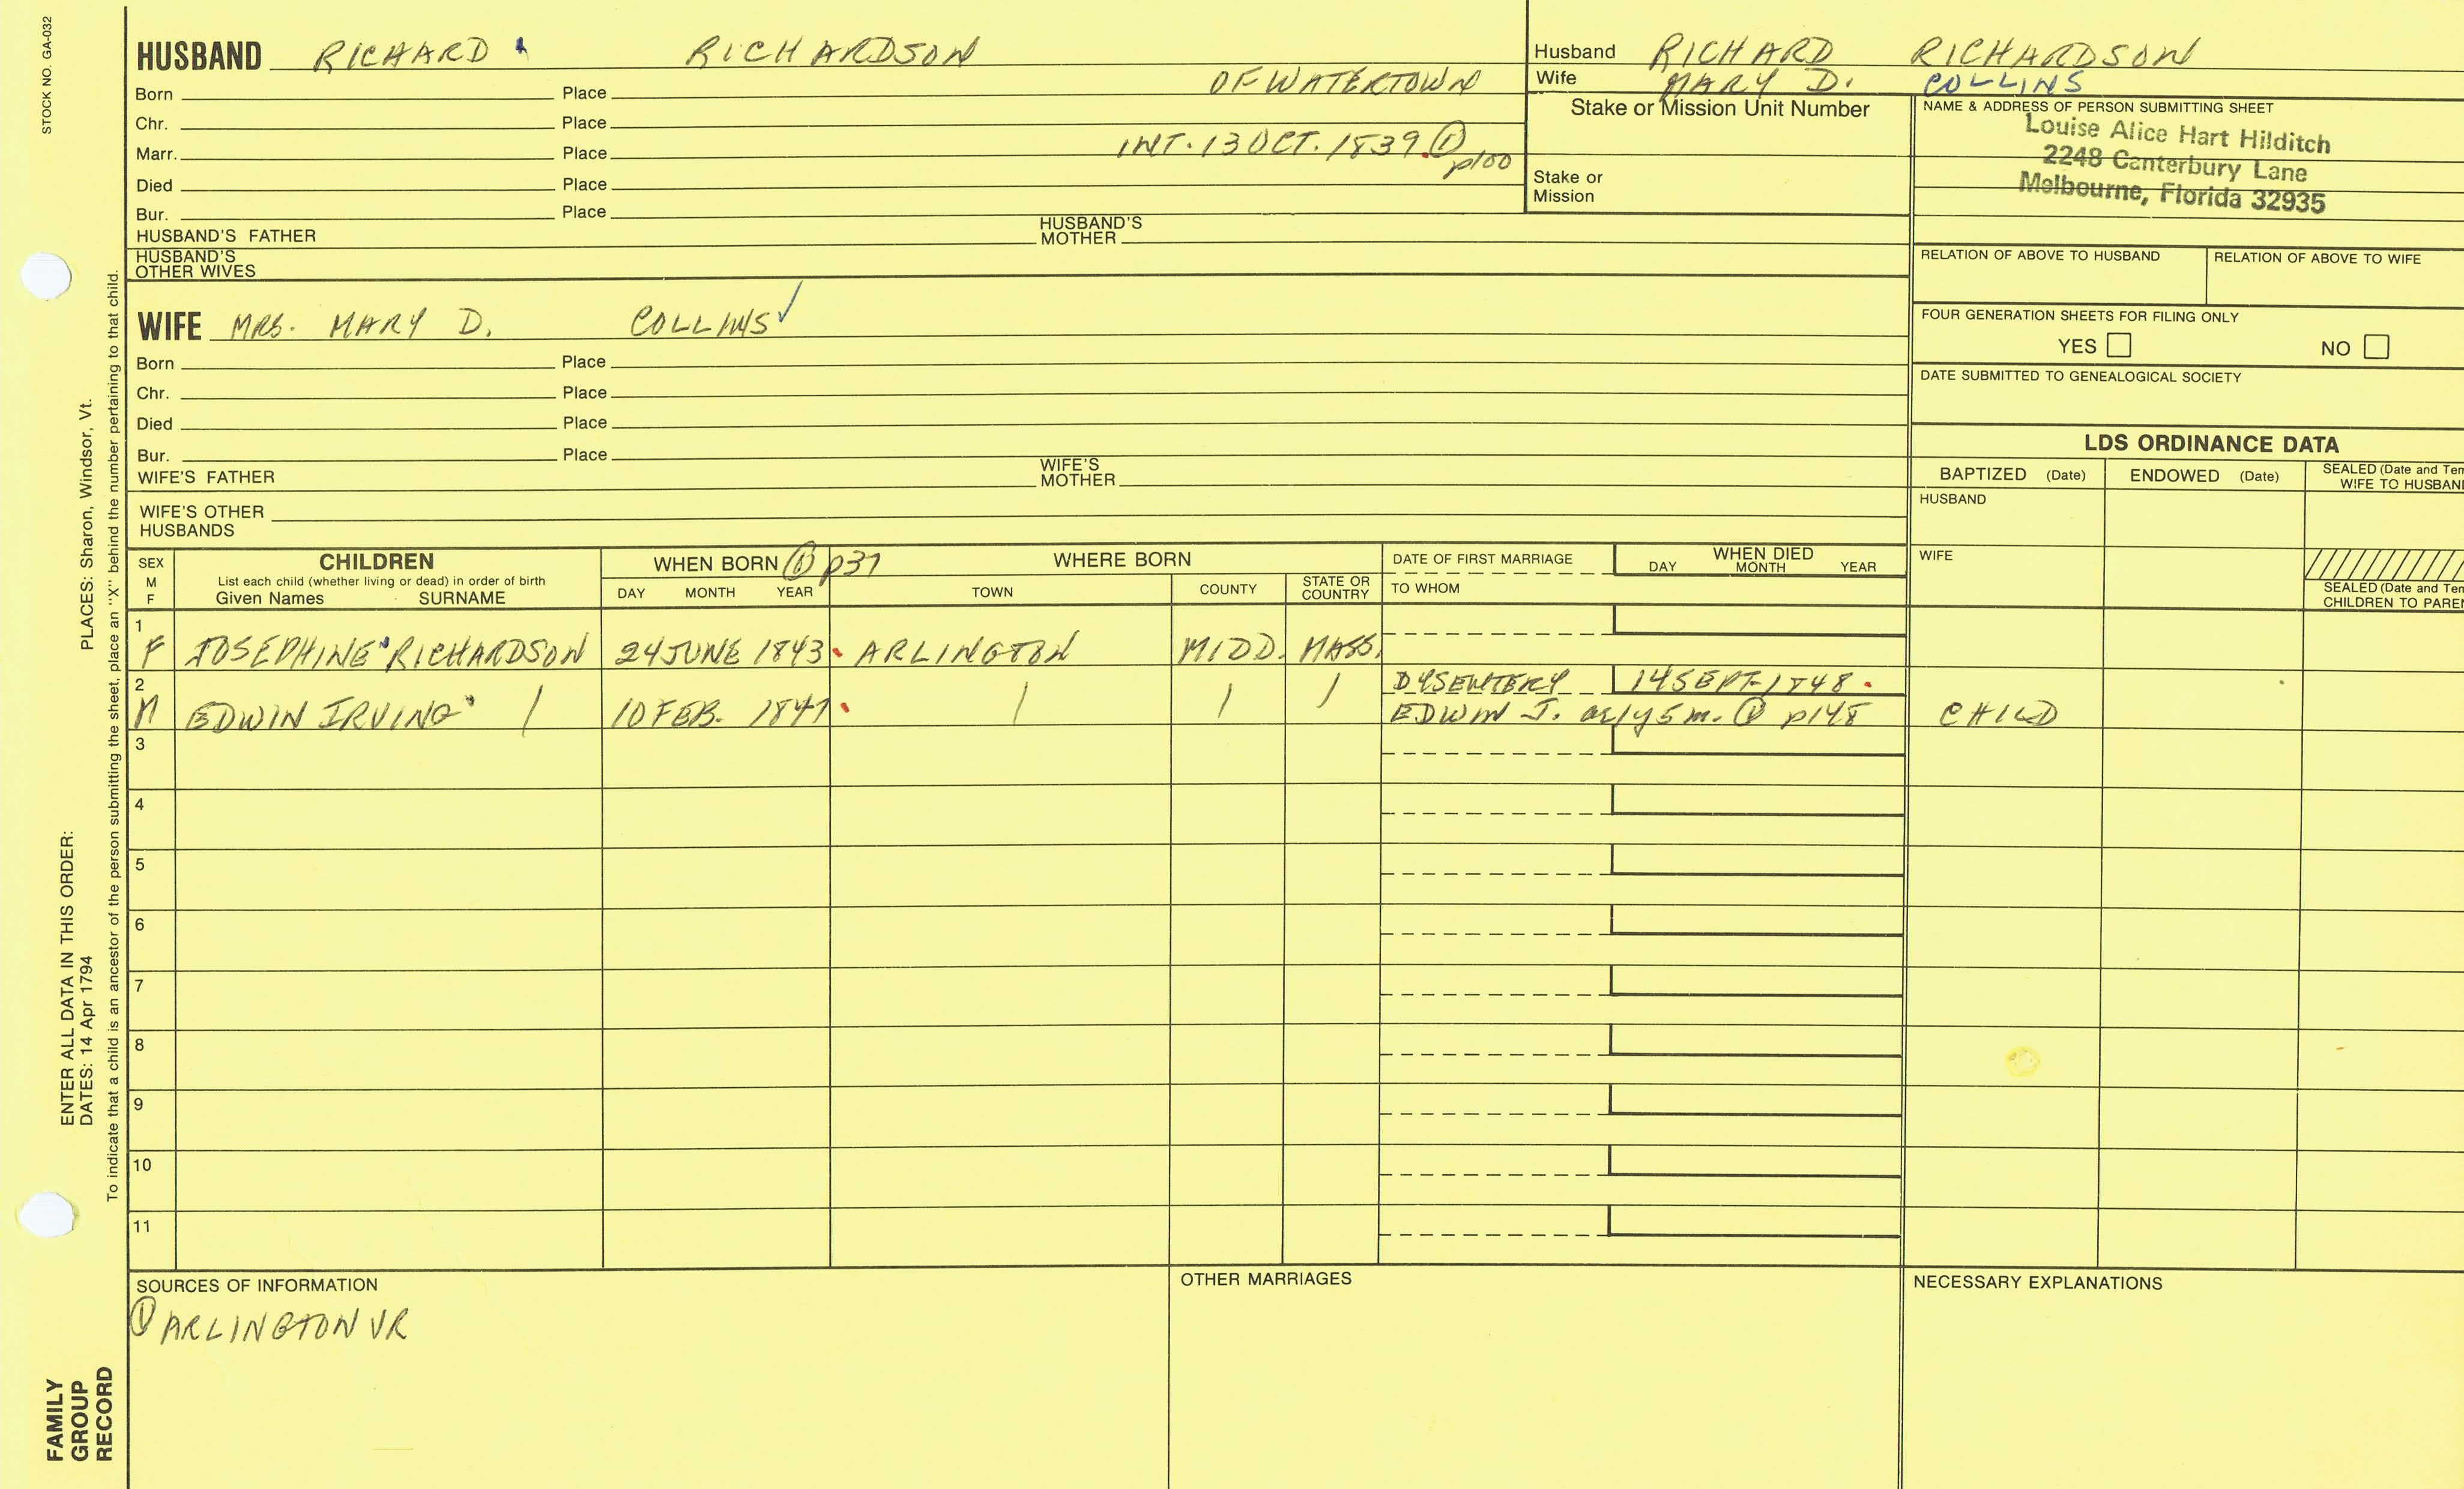 STOCK NO. GA-032
HUSBAND RICHARD RICHARDSON
OF WATERTOWN
Born Place
Chr. Place
INT. 13 OCT. 1839. ① p100
Marr. Place
Died Place
Bur. Place
HUSBAND'S FATHER HUSBAND'S MOTHER
HUSBAND'S OTHER WIVES
Husband RICHARD RICHARDSON
Wife MARY D. COLLINS
Stake or Mission Unit Number
Stake or Mission
NAME & ADDRESS OF PERSON SUBMITTING SHEET
Louise Alice Hart Hilditch
2248 Canterbury Lane
Melbourne, Florida 32935
RELATION OF ABOVE TO HUSBAND RELATION OF ABOVE TO WIFE
FOUR GENERATION SHEETS FOR FILING ONLY
YES NO
DATE SUBMITTED TO GENEALOGICAL SOCIETY
WIFE MRS. MARY D. COLLINS ✓
Born Place
Chr. Place
Died Place
Bur. Place
WIFE'S FATHER WIFE'S MOTHER
WIFE'S OTHER HUSBANDS
LDS ORDINANCE DATA
BAPTIZED (Date) ENDOWED (Date) SEALED (Date and Tem
WIFE TO HUSBAN
HUSBAND
WIFE
SEALED (Date and Tem
CHILDREN TO PARE
SEX M F
CHILDREN
List each child (whether living or dead) in order of birth
Given Names SURNAME
WHEN BORN ① p37
DAY MONTH YEAR
WHERE BORN
TOWN COUNTY STATE OR COUNTRY
DATE OF FIRST MARRIAGE
TO WHOM
WHEN DIED
DAY MONTH YEAR
1
F JOSEPHINE RICHARDSON 24 JUNE 1843 ARLINGTON MIDD. MASS.
2 DYSENTERY 14 SEPT. 1848
M EDWIN IRVING / 10 FEB. 1847 / / / EDWIN J. ae 1y 5m. ① p148 CHILD
3
4
5
6
7
8
9
10
11
SOURCES OF INFORMATION
① ARLINGTON VR
OTHER MARRIAGES
NECESSARY EXPLANATIONS
ENTER ALL DATA IN THIS ORDER:
DATES: 14 Apr 1794 PLACES: Sharon, Windsor, Vt.
To indicate that a child is an ancestor of the person submitting the sheet, place an "X" behind the number pertaining to that child.
FAMILY
GROUP
RECORD